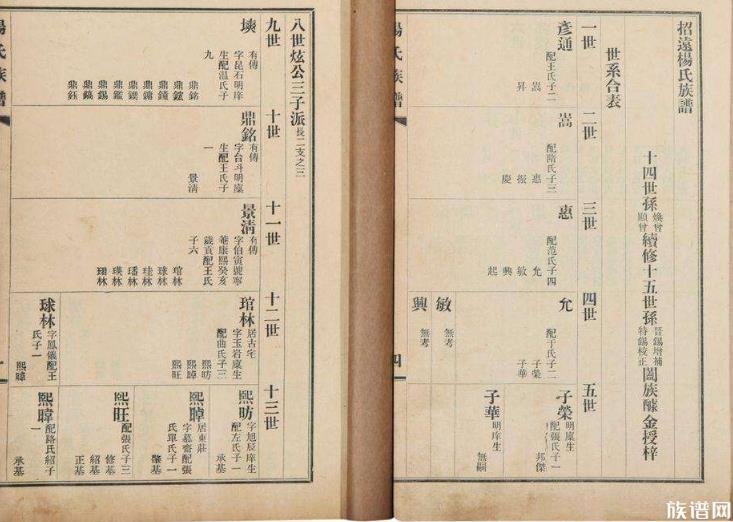 招遠楊氏族譜
十四世孫煥曾顯曾續修十五世孫晉錫增補特錫校正闔族醵金授梓
世系合表
一世
彥通
配王氏子二
嵩
昇
二世
嵩
配隋氏子三
惠
振
慶
三世
惠
配范氏子四
允
敏
興
起
四世
允
配于氏子二
子榮
子華
敏
無考
興
無考
五世
子榮
明廩生
配張氏子一
邦傑
子華
明庠生
無嗣
四
八世炫公三子派長二支之三
九世
㙺
有傳
字昆石明庠
生配溫氏子
九
鼎銘
鼎鉉
鼎鐘
鼎鏞
鼎鎂
鼎鑑
鼎錫
鼎鎬
鼎鈺
十世
鼎銘
有傳
字台斗明廩
生配王氏子
一
景清
十一世
景清
有傳
字伯寅號寧
菴康熙癸亥
歲貢配王氏
子六
琯林
球林
珪林
璠林
瑛林
珝林
十二世
琯林
居古宅
字玉岩廩生
配曲氏子三
熙昉
熙暐
熙旺
球林
字鳳儀配王
氏子一
熙暐
十三世
熙昉
字旭辰庠生
配左氏子一
承基
熙暐
居東莊
字慕齋配張
氏單氏子一
肇基
熙旺
配張氏子三
修基
紹基
正基
熙暐
配路氏紹子
一
承基
楊氏族譜
族谱网